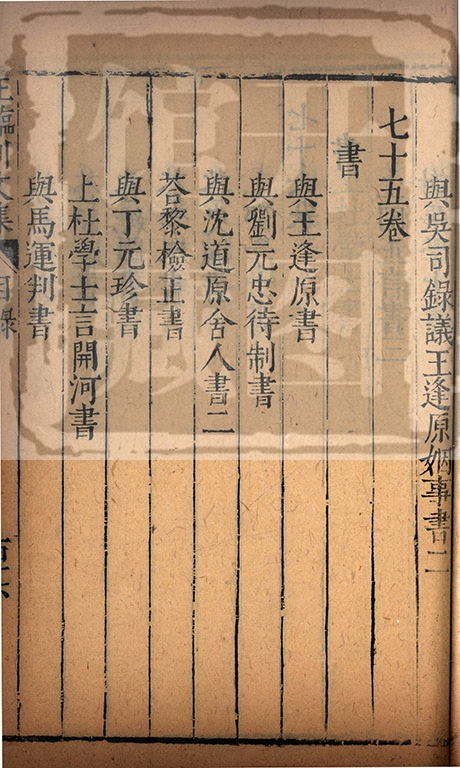 與吳司錄議王逢原姻事書二
七十五卷
書
與王逢原書
與劉元忠待制書
與沈道原舍人書二
荅黎檢正書
與丁元珍書
上杜學士言開河書
與馬運判書
王臨川文集 目錄